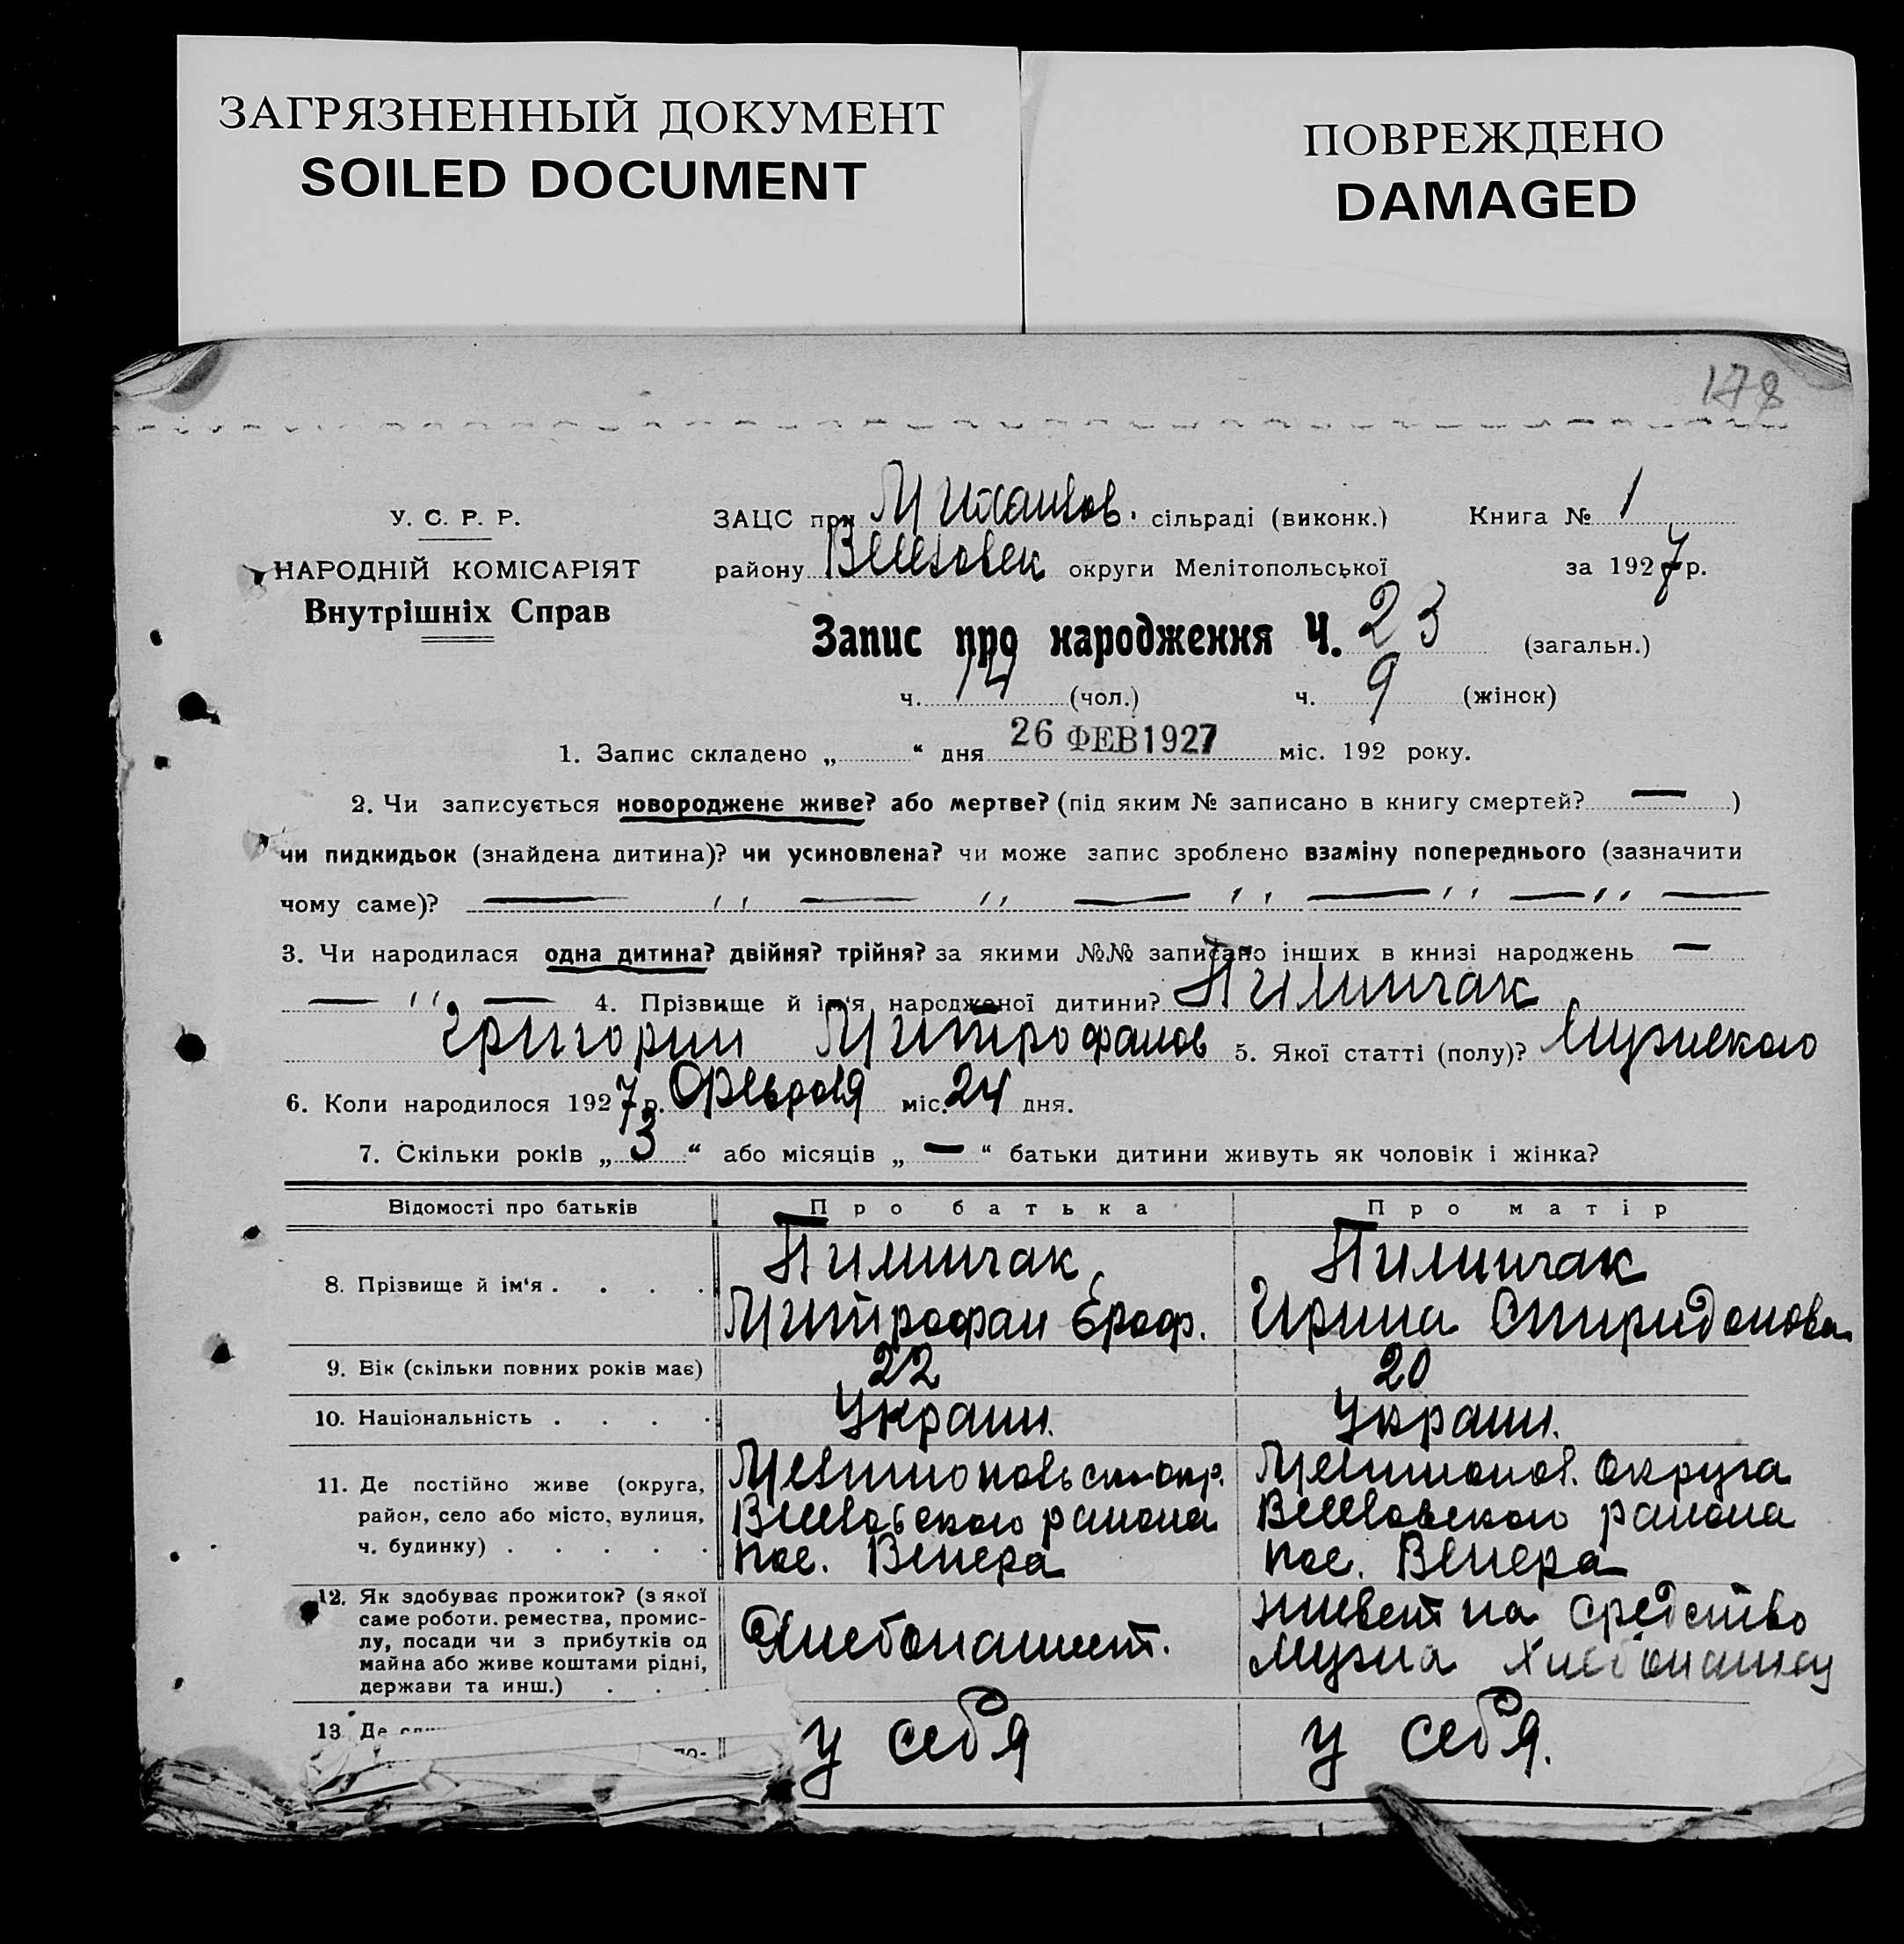 ЗАГРЯЗНЕННЫЙ ДОКУМЕНТ
SOILED DOCUMENT
ПОВРЕЖДЕНО
DAMAGED
178
У. С. Р. Р.
НАРОДНІЙ КОМІСАРІЯТ
Внутрішніх Справ
ЗАЦС при Михайлов. сільраді (виконк.) Книга № 1
району округи Мелітопольської за 1927 р.
Запис про народження Ч. 23 (загальн.)
ч. 14 (чол.) ч. 9 (жінок)
1. Запис складено „ “ дня 26 ФЕВ 1927 міс. 192 року.
2. Чи записується новороджене живе? або мертве? (під яким № записано в книгу смертей? — )
чи пидкидьок (знайдена дитина)? чи усиновлена? чи може запис зроблено взаміну попереднього (зазначити
чому саме)? — ,, — ,, — ,, — ,, — ,, —
3. Чи народилася одна дитина? двійня? трійня? за якими №№ записано інших в книзі народжень —
— ,, — 4. Прізвище й ім‘я народженої дитини? Пилипчак
Григорий Митрофанов 5. Якої статті (полу)? Мужского
6. Коли народилося 1927 р. Февраля міс. 24 дня.
7. Скільки років „ 3 “ або місяців „ — “ батьки дитини живуть як чоловік і жінка?
Відомості про батьків Про батька Про матір
8. Прізвище й ім‘я . . . . Пилипчак Пилипчак
Митрофан Ероф. Ирина Спиридонова
9. Вік (скільки повних років має) 22 20
10. Національність . . . . Украин. Украин.
11. Де постійно живе (округа, округа
район, село або місто, вулиця, района района
ч. будинку) . . . . . пос. Венера пос. Венера
12. Як здобуває прожиток? (з якої живет на средство
саме роботи. ремества, промис-
лу, посади чи з прибутків од Хлебопашест. мужа
майна або живе коштами рідні,
держави та инш.) . . .
13. Де у себя у себя.